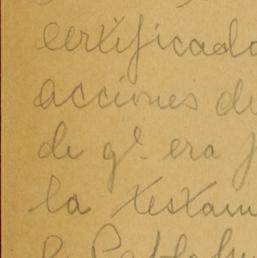 certificado
acciones de
de qe. era
la testam